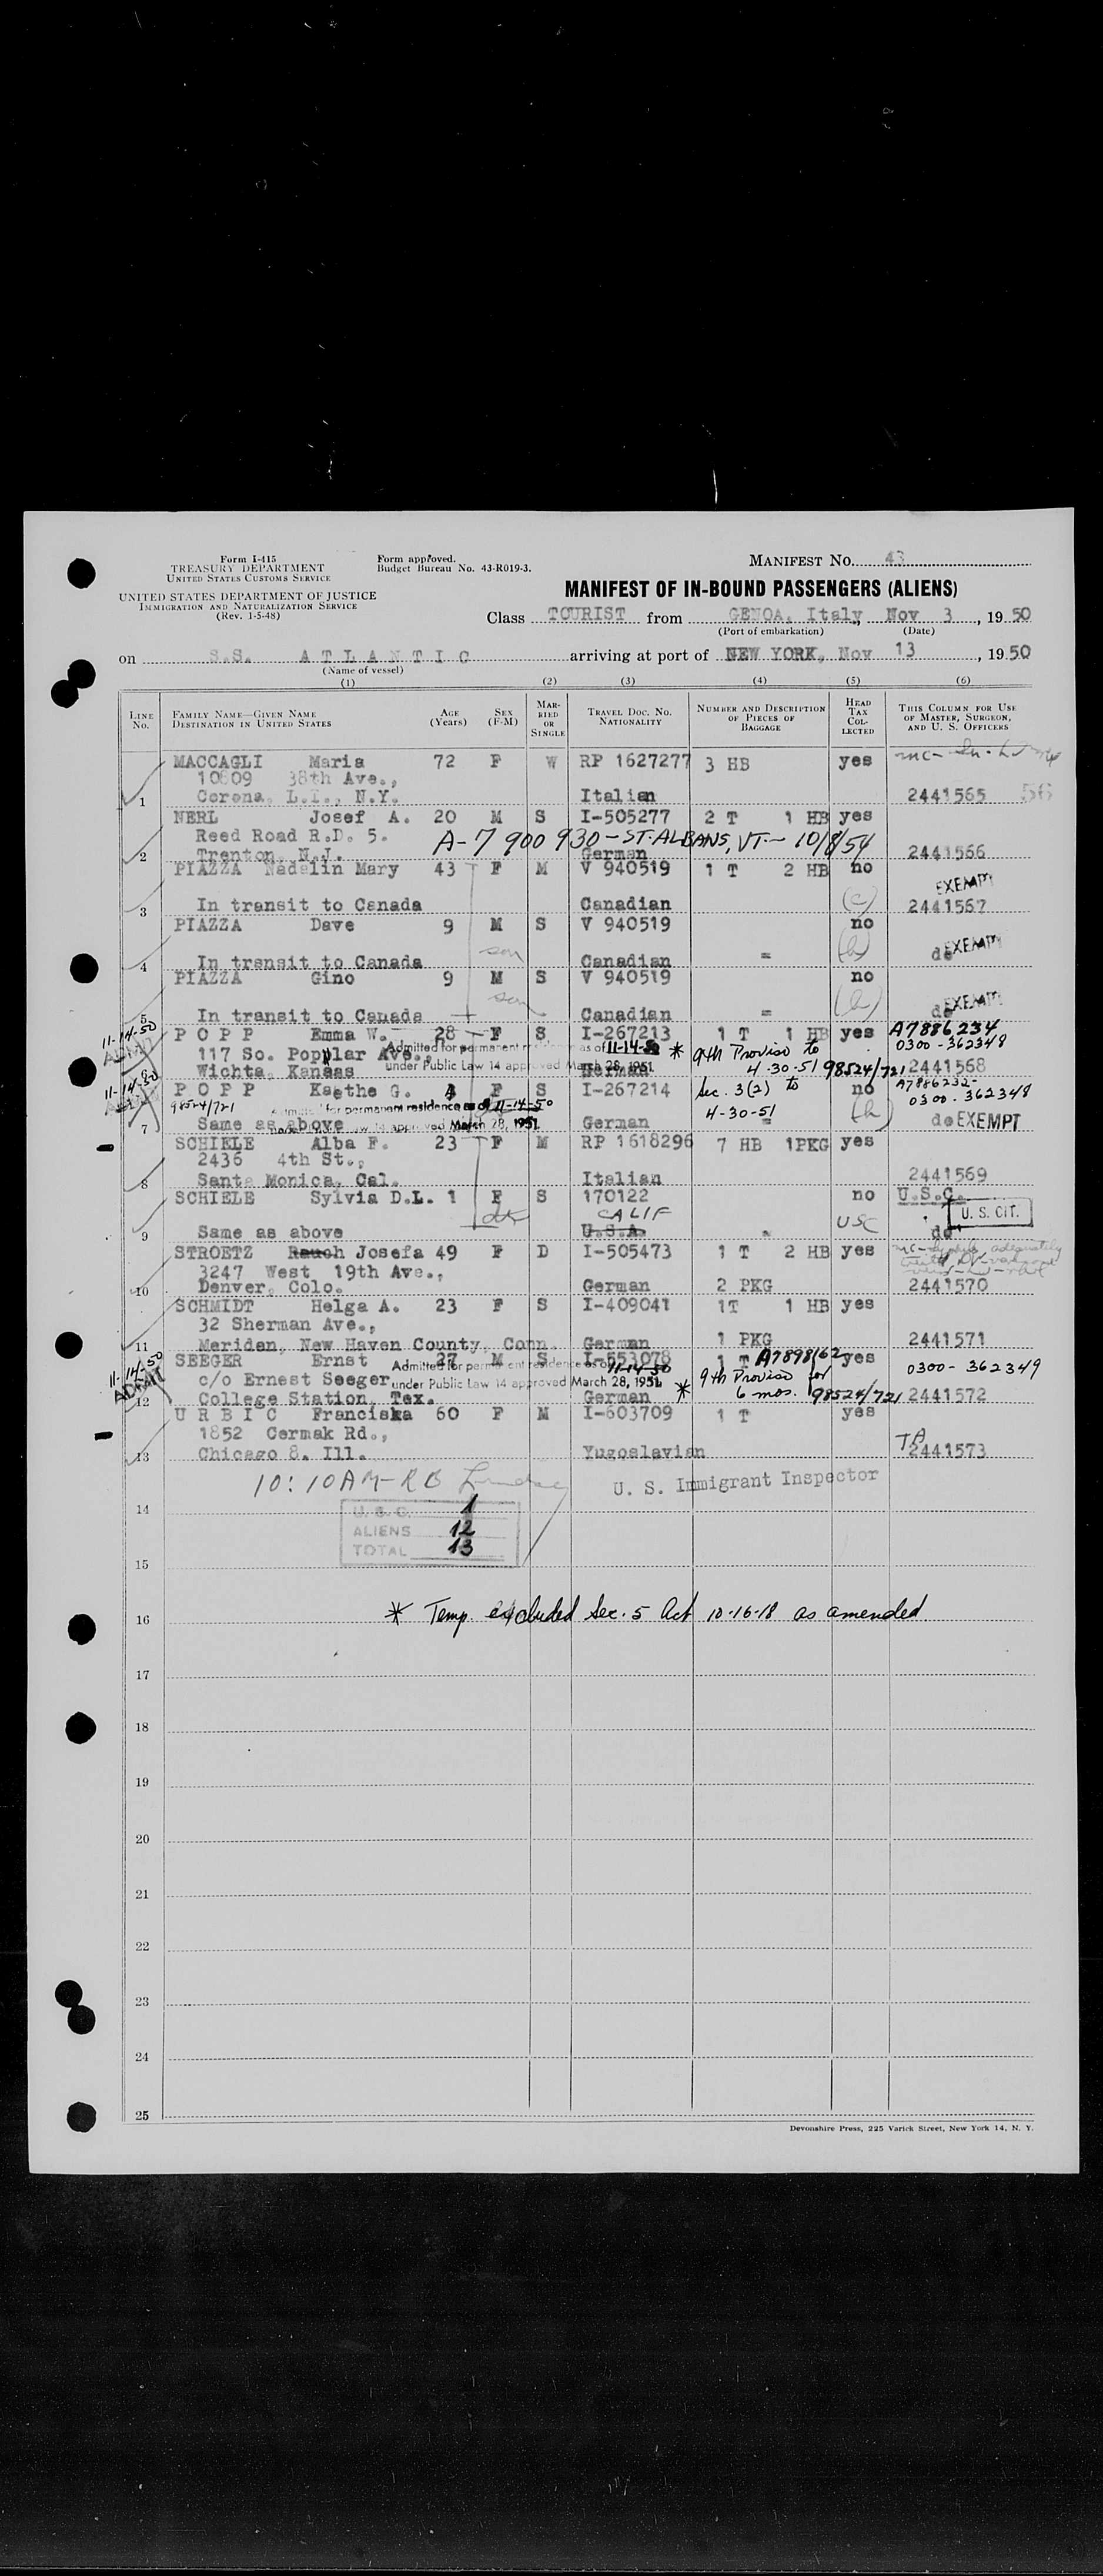 Form I-415
TREASURY DEPARTMENT
UNITED STATES CUSTOMS SERVICE
Form approved.
Budget Bureau No. 43-R019-3.
MANIFEST NO. 43
UNITED STATES DEPARTMENT OF JUSTICE
IMMIGRATION AND NATURALIZATION SERVICE
(Rev. 1-5-48)
MANIFEST OF IN-BOUND PASSENGERS (ALIENS)
Class TOURIST from GENOA, Italy, Nov 3, 1950
(Port of embarkation) (Date)
on S.S. ATLANTIC arriving at port of NEW YORK, Nov 13, 1950
(Name of vessel)
(1) (2) (3) (4) (5) (6)
LINE NO. FAMILY NAME—GIVEN NAME DESTINATION IN UNITED STATES AGE (Years) SEX (F-M) MARRIED OR SINGLE TRAVEL DOC. NO. NATIONALITY NUMBER AND DESCRIPTION OF PIECES OF BAGGAGE HEAD TAX COLLECTED THIS COLUMN FOR USE OF MASTER, SURGEON, AND U. S. OFFICERS
MACCAGLI Maria 72 F W RP 1627277 3 HB yes
10809 38th Ave.,
1 Corona, L.I., N.Y. Italian 2441565 56
NERL Josef A. 20 M S I-505277 2 T 1 HB yes
Reed Road R.D. 5. A-7 900 930 - ST. ALBANS, VT. - 10/8/54
2 Trenton, N.J. German 2441566
PIAZZA Nadalin Mary 43 F M V 940519 1 T 2 HB no
EXEMPT
3 In transit to Canada Canadian (c) 2441567
PIAZZA Dave 9 M S V 940519 no
son
4 In transit to Canada Canadian = do EXEMPT
PIAZZA Gino 9 M S V 940519 no
son
5 In transit to Canada Canadian = do EXEMPT
11-14-50 ADMIT
POPP Emma W. 28 F S I-267213 1 T 1 HB yes A7886234
117 So. Popplar Ave., Admitted for permanent residence as of 11-14-50 * 9th Proviso to 0300-362348
6 Wichta, Kansas under Public Law 14 approved March 28, 1951. German 4-30-51 98524/721 2441568
11-14-50
POPP Kaethe G. 4 F S I-267214 Sec. 3(2) to no A7886232-
98524/721 Admitted for permanent residence as of 11-14-50 4-30-51 0300-362348
7 Same as above under Public Law 14 approved March 28, 1951. German = (h) do EXEMPT
SCHIELE Alba F. 23 F M RP 1618296 7 HB 1PKG yes
2436 4th St.,
8 Santa Monica, Cal. Italian 2441569
SCHIELE Sylvia D.L. 1 F S 170122 no U.S.C.
CALIF USC U. S. CIT.
9 Same as above U.S.A. = do
STROETZ Rauch Josefa 49 F D I-505473 1 T 2 HB yes
3247 West 19th Ave.,
10 Denver, Colo. German 2 PKG 2441570
SCHMIDT Helga A. 23 F S I-409041 1T 1 HB yes
32 Sherman Ave.,
11 Meriden, New Haven County, Conn. German 1 PKG 2441571
11-14-50 ADMIT
SEEGER Ernst 27 M S I-553078 1 T A7898162 yes
c/o Ernest Seeger Admitted for permanent residence as of 11-14-50 9th Proviso for 0300-362349
12 College Station, Tex. under Public Law 14 approved March 28, 1951. German * 6 mos. 98524/721 2441572
URBIC Franciska 60 F M I-603709 1 T yes
1852 Cermak Rd.,
13 Chicago 8. Ill. Yugoslavian TA 2441573
10:10AM-RB U. S. Immigrant Inspector
14
U. S. C. 1
ALIENS 12
TOTAL 13
15
16 * Temp. excluded Sec. 5 Act 10-16-18 as amended
17
18
19
20
21
22
23
24
25
Devonshire Press, 225 Varick Street, New York 14, N. Y.